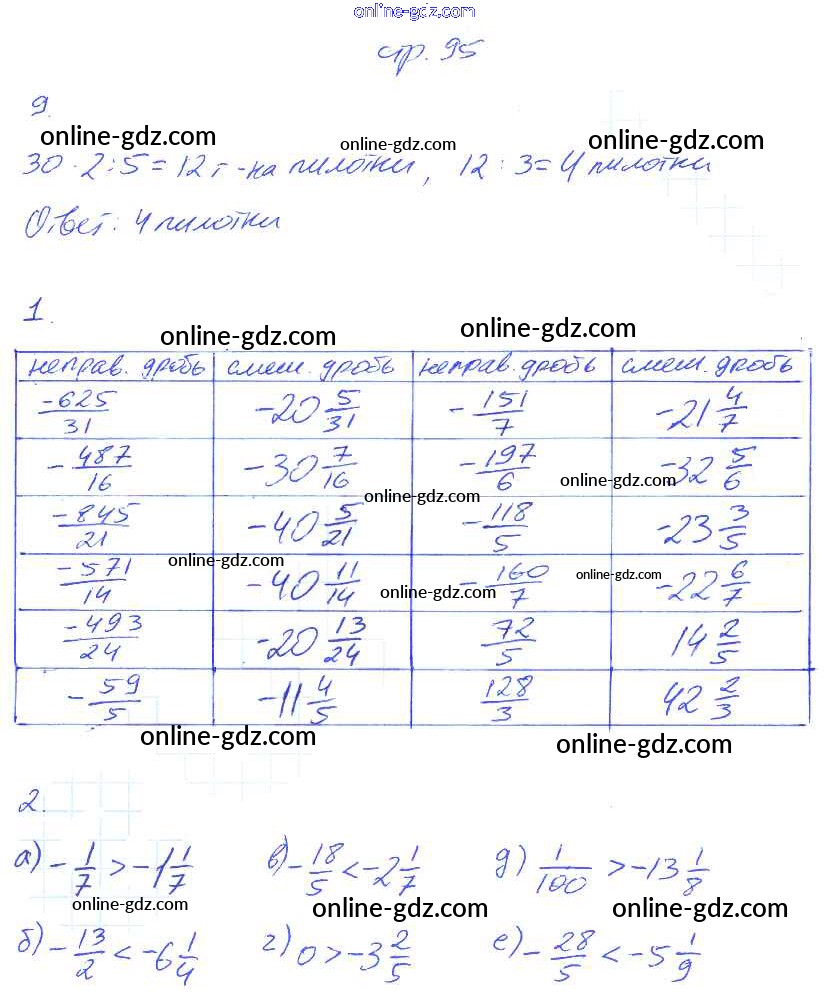 online-gdz.com
стр. 95
9.
online-gdz.com online-gdz.com online-gdz.com
30 · 2 : 5 = 12 г - на пилотки, 12 : 3 = 4 пилотки
Ответ: 4 пилотки
1.
online-gdz.com online-gdz.com
неправ. дробь смеш. дробь неправ. дробь смеш. дробь
-625/31 -20 5/31 -151/7 -21 4/7
-487/16 -30 7/16 -197/6 -32 5/6
online-gdz.com online-gdz.com
-845/21 -40 5/21 -118/5 -23 3/5
online-gdz.com online-gdz.com online-gdz.com
-571/14 -40 11/14 -160/7 -22 6/7
-493/24 -20 13/24 72/5 14 2/5
-59/5 -11 4/5 128/3 42 2/3
online-gdz.com online-gdz.com
2.
а) -1/7 > -1 1/7 в) -18/5 < -2 1/7 д) 1/100 > -13 1/8
online-gdz.com online-gdz.com online-gdz.com
б) -13/2 < -6 1/4 г) 0 > -3 2/5 е) -28/5 < -5 1/9